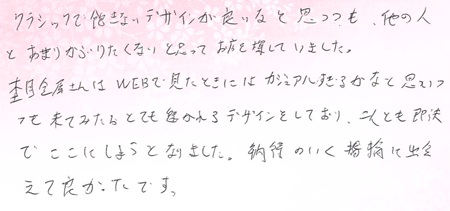 クラシックで飽きないデザインが良いなと思いつつも、他の人
とあまりかぶりたくないと思ってお店を探していました。
杢目金屋さんはWEBで見たときにはカジュアルすぎるかなと思いつ
つも来てみたらとても惹かれるデザインをしており、二人とも即決
でここにしようとなりました。納得のいく指輪に出会
えて良かったです。